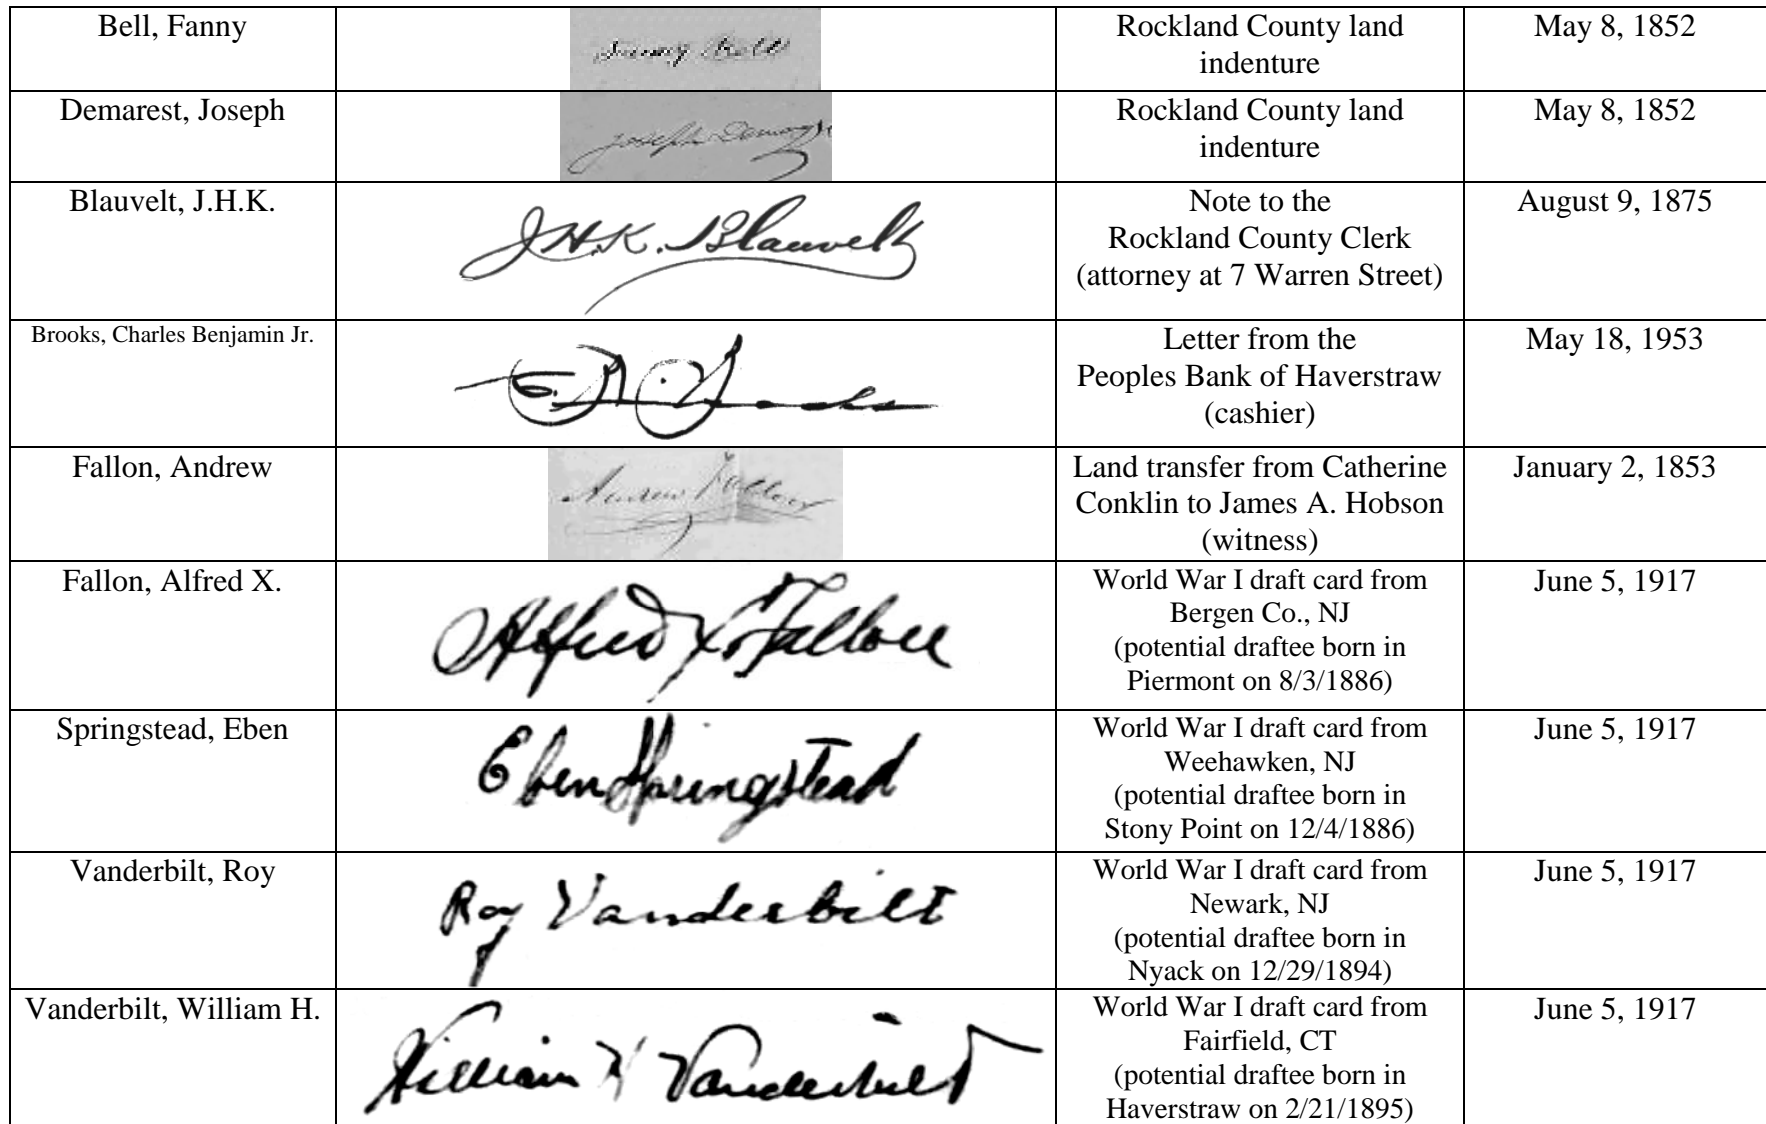 Bell, Fanny
Fanny Bell
Rockland County land
indenture
May 8, 1852
Demarest, Joseph
Joseph Demarest
Rockland County land
indenture
May 8, 1852
Blauvelt, J.H.K.
J.H.K. Blauvelt
Note to the
Rockland County Clerk
(attorney at 7 Warren Street)
August 9, 1875
Brooks, Charles Benjamin Jr.
C. B. Brooks
Letter from the
Peoples Bank of Haverstraw
(cashier)
May 18, 1953
Fallon, Andrew
Andrew Fallon
Land transfer from Catherine
Conklin to James A. Hobson
(witness)
January 2, 1853
Fallon, Alfred X.
Alfred X. Fallon
World War I draft card from
Bergen Co., NJ
(potential draftee born in
Piermont on 8/3/1886)
June 5, 1917
Springstead, Eben
Eben Springstead
World War I draft card from
Weehawken, NJ
(potential draftee born in
Stony Point on 12/4/1886)
June 5, 1917
Vanderbilt, Roy
Roy Vanderbilt
World War I draft card from
Newark, NJ
(potential draftee born in
Nyack on 12/29/1894)
June 5, 1917
Vanderbilt, William H.
William H Vanderbilt
World War I draft card from
Fairfield, CT
(potential draftee born in
Haverstraw on 2/21/1895)
June 5, 1917